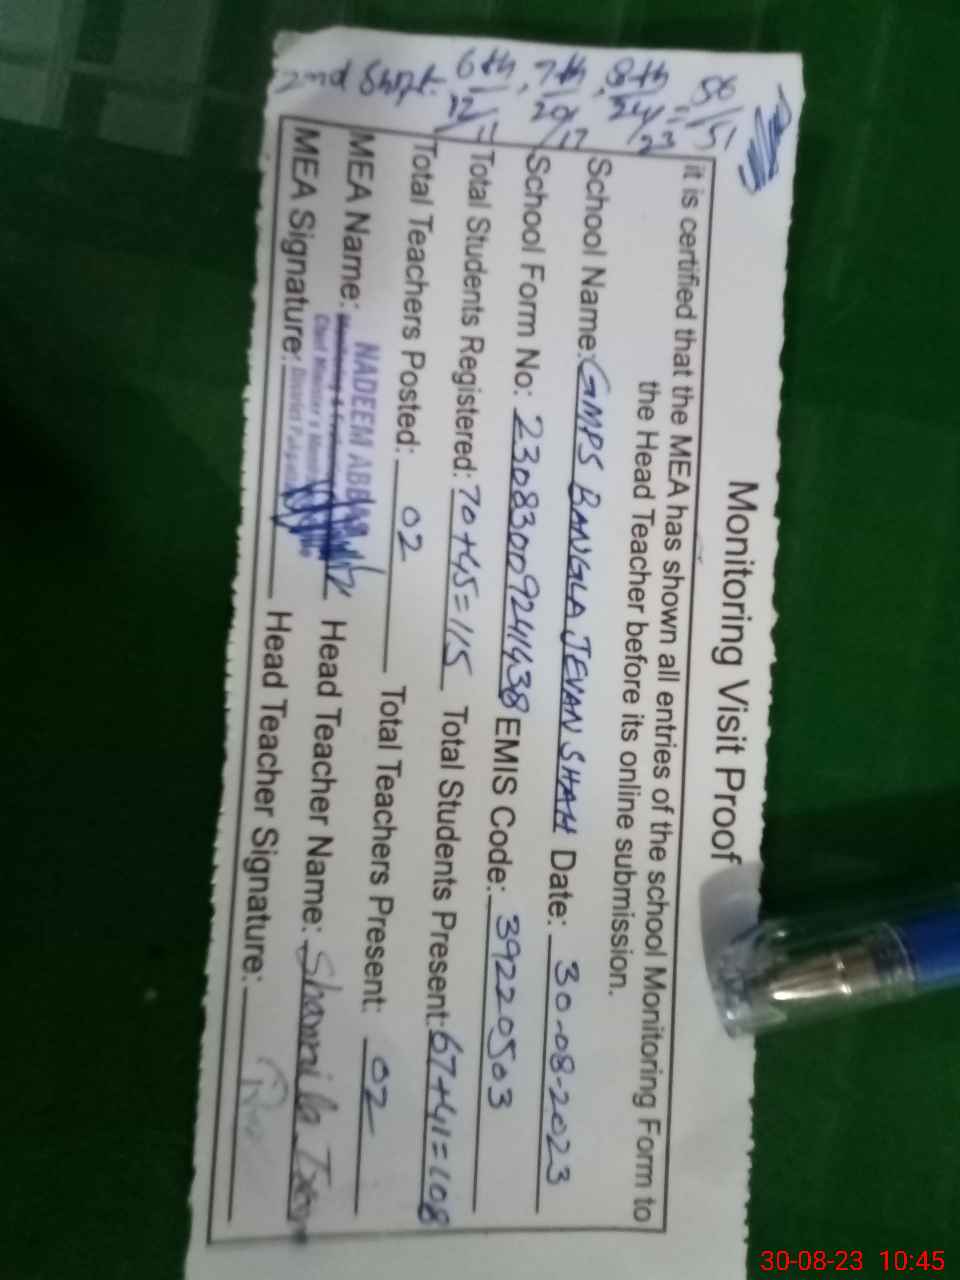 Monitoring Visit Proof
it is certified that the MEA has shown all entries of the school Monitoring Form to
the Head Teacher before its online submission.
School Name: GMPS BANGLA JEVAN SHAH Date: 30-08-2023
School Form No: 23083009241438 EMIS Code: 39220503
Total Students Registered: 70+45=115 Total Students Present: 67+41=108
Total Teachers Posted: 02 Total Teachers Present: 02
MEA Name: NADEEM ABBAS Head Teacher Name: Shamila
MEA Signature: District Head Teacher Signature:
2nd Shift: 6th, 7th, 8th
30-08-23 10:45